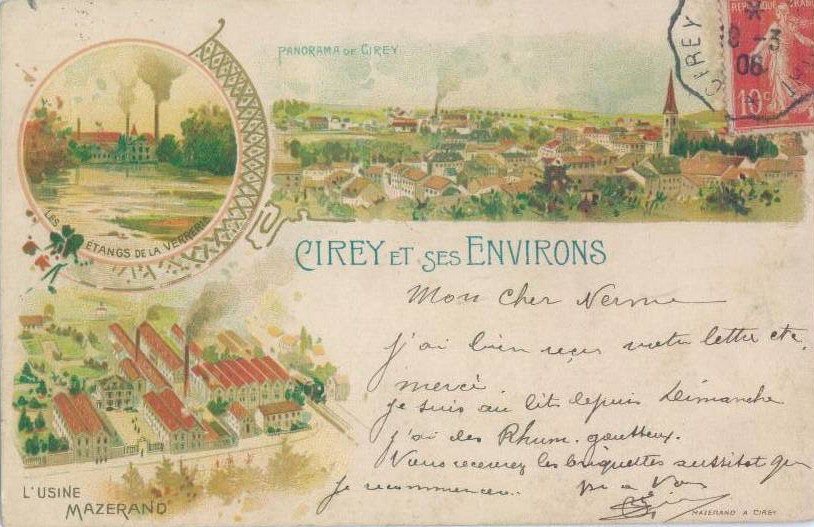 PANORAMA DE CIREY
CIREY
8 - 3
06
REPUBLIQUE FRANÇAISE
10c
LES ETANGS DE LA VERRERIE
CIREY ET SES ENVIRONS
Mon cher
j'ai bien reçus votre lettre etc.
mercè.
je suis au lit depuis Dimanche
j'ai des Rhum. goutteux.
Vous recevrez les briquettes aussitot que
je recommencer.. a Vous
L'USINE
MAZERAND
MAZERAND A CIREY